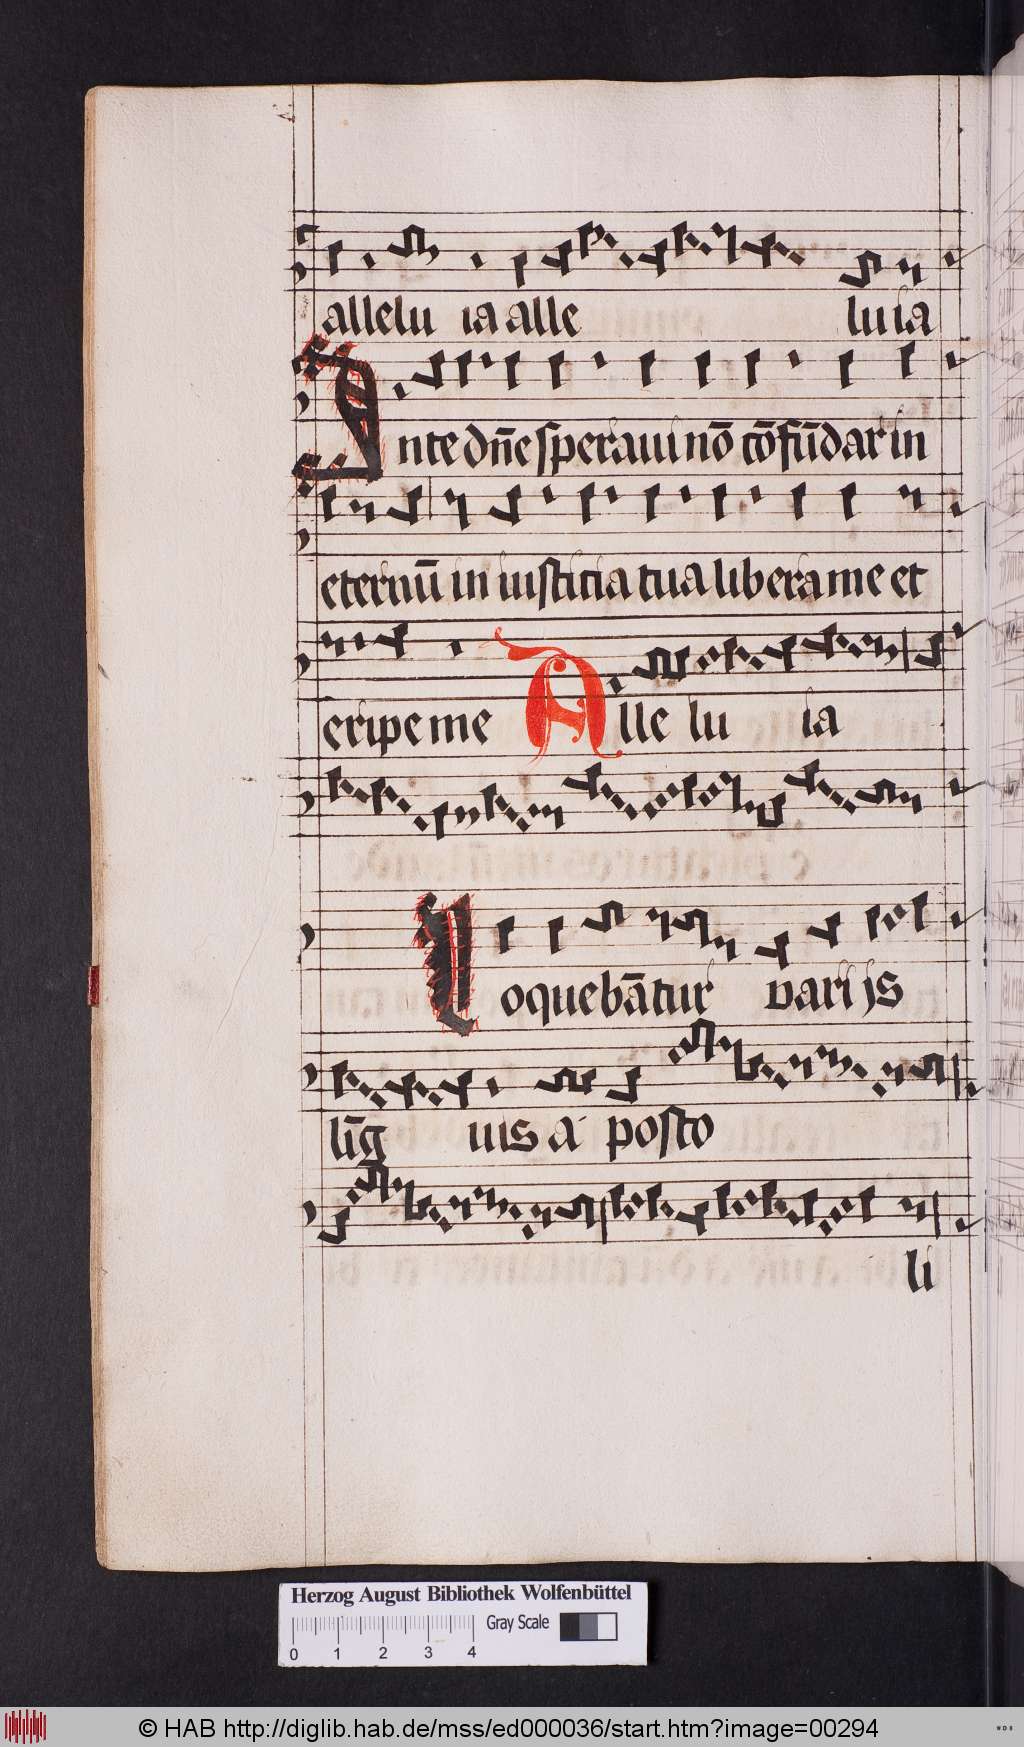 allelu ia alle lu ia
In te dn̄e speraui nō cōfūdar in
eternū in iusticia tua libera me et
eripe me Alle lu ia
Loquebātur variis
līg uis a posto
li
Herzog August Bibliothek Wolfenbüttel
Gray Scale
0 1 2 3 4
© HAB http://diglib.hab.de/mss/ed000036/start.htm?image=00294